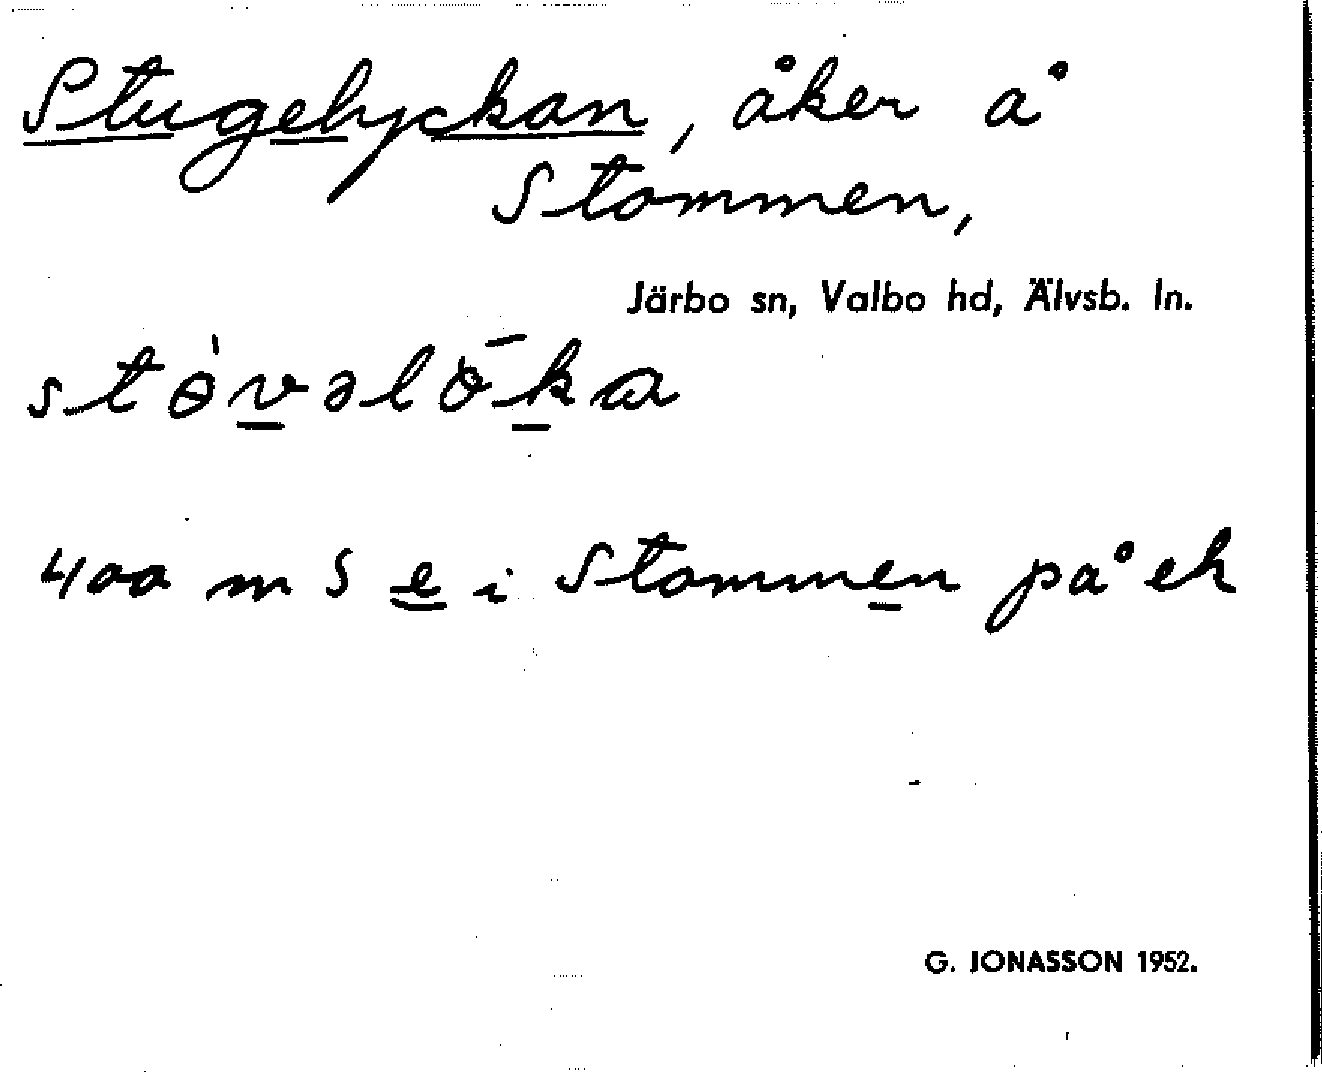 Stugelyckan, åker å
Stommen,
Järbo sn, Valbo hd, Älvsb. ln.
400 m S e i Stommen på ek
G. JONASSON 1952.